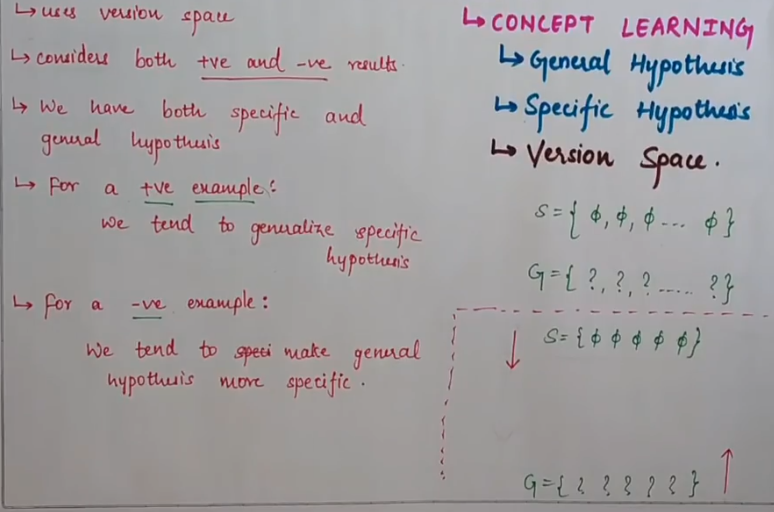 ↳ uses version space
↳ considers both +ve and -ve results.
↳ We have both specific and
general hypothesis
↳ For a +ve example:
we tend to generalize specific
hypothesis
↳ for a -ve example:
We tend to speci make general
hypothesis more specific.
↳ CONCEPT LEARNING
↳ General Hypothesis
↳ Specific Hypothesis
↳ Version Space.
S={ ϕ, ϕ, ϕ --- ϕ}
G={ ?, ?, ? ..... ?}
S={ϕ ϕ ϕ ϕ ϕ}
G={ ? ? ? ? ? }